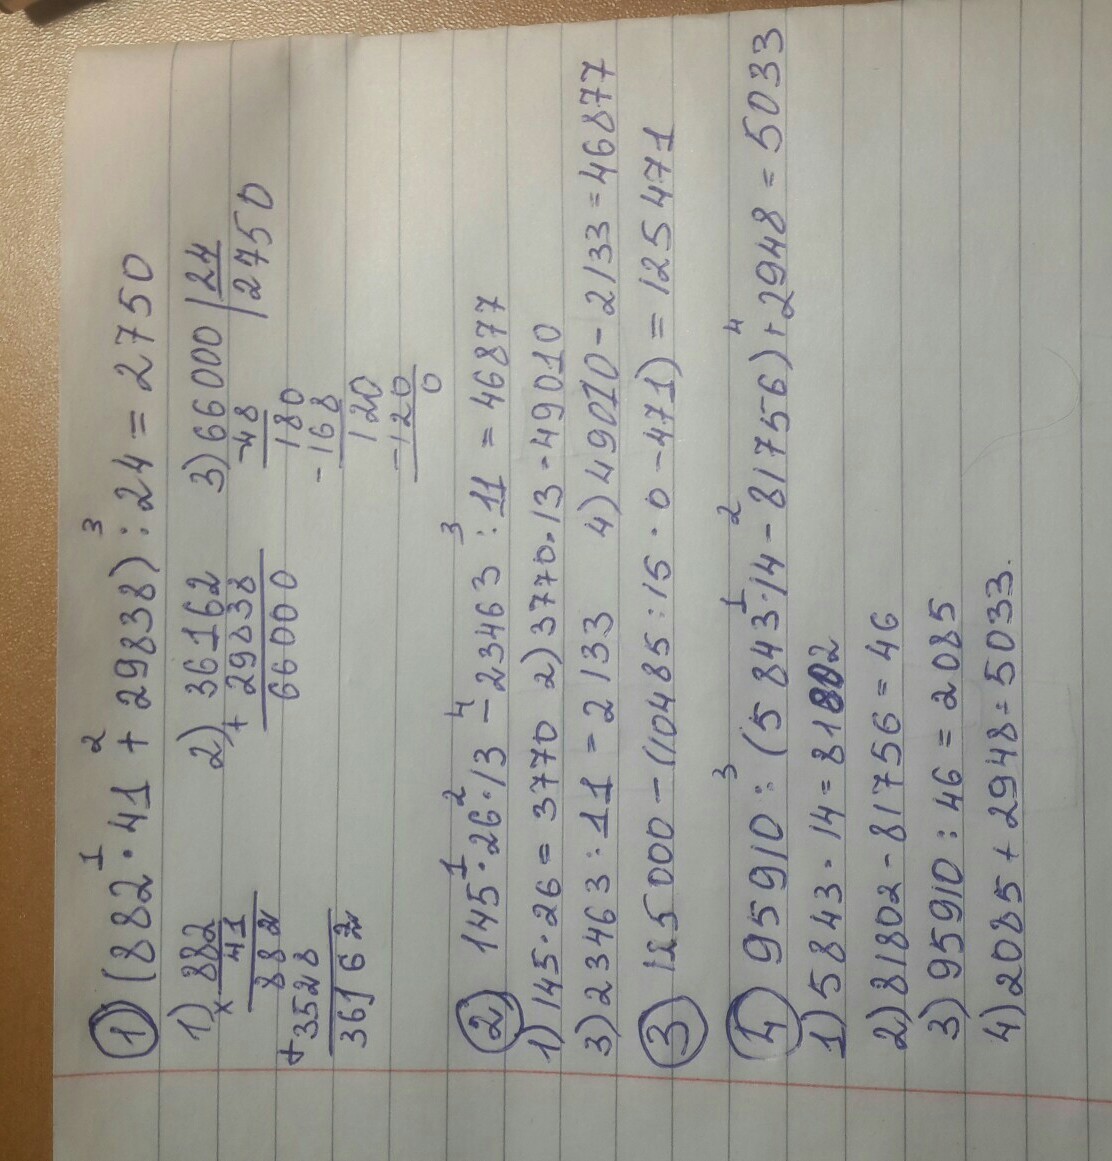 ① (882 · 41 + 29838) : 24 = 2750
1 2 3
1) × 882 2) 36162 3) 66000 | 24
41 + 29838 - 48 2750
882 66000 180
+ 3528 - 168
36162 120
- 120
0
② 145 · 26 · 13 - 23463 : 11 = 46877
1 2 4 3
1) 145 · 26 = 3770 2) 3770 · 13 = 49010
3) 23463 : 11 = 2133 4) 49010 - 2133 = 46877
③ 125 000 - (10485 : 15 · 0 - 471) = 125 471
④ 95910 : (5 843 · 14 - 81756) + 2948 = 5033
3 1 2 4
1) 5843 · 14 = 81802
2) 81802 - 81756 = 46
3) 95910 : 46 = 2085
4) 2085 + 2948 = 5033.